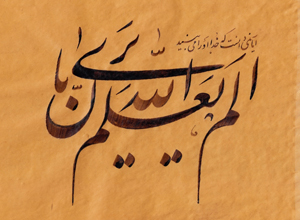 آیا نمی‌دانست که خدا او را می‌بیند
الم یعلم بان الله یری